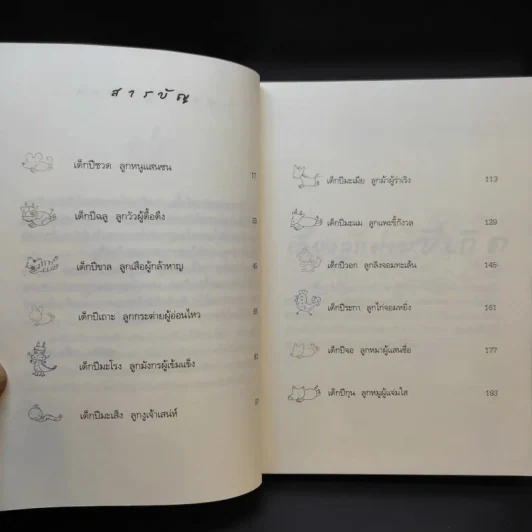 สารบัญ
เด็กปีชวด ลูกหนูแสนซน
เด็กปีฉลู ลูกวัวผู้ดื้อดึง
เด็กปีขาล ลูกเสือผู้กล้าหาญ
เด็กปีเถาะ ลูกกระต่ายผู้อ่อนไหว
เด็กปีมะโรง ลูกมังกรผู้เข้มแข็ง
เด็กปีมะเส็ง ลูกงูเจ้าเสน่ห์
เด็กปีมะเมีย ลูกม้าผู้ร่าเริง 113
เด็กปีมะแม ลูกแพะขี้กังวล 129
เด็กปีวอก ลูกลิงจอมทะเล้น 145
เด็กปีระกา ลูกไก่จอมหยิ่ง 161
เด็กปีจอ ลูกหมาผู้แสนซื่อ 177
เด็กปีกุน ลูกหมูผู้แจ่มใส 193